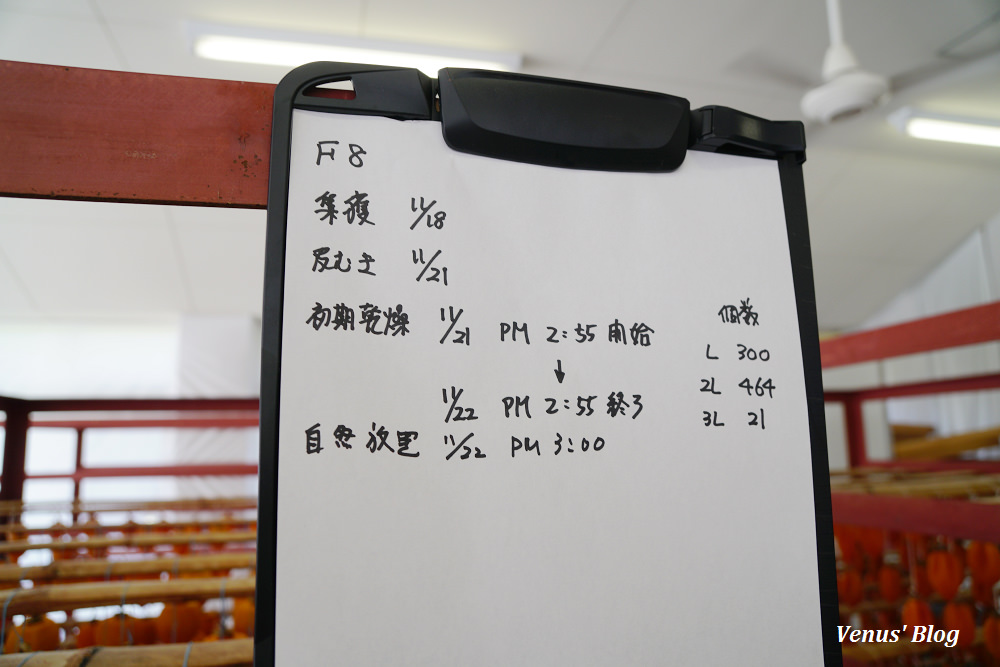 F8
集穫 11/18
反むき 11/21
初期乾燥 11/21 PM 2:55 開始
↓
11/22 PM 2:55 終了
自然放置 11/22 PM 3:00
個数
L 300
2L 464
3L 21
Venus' Blog